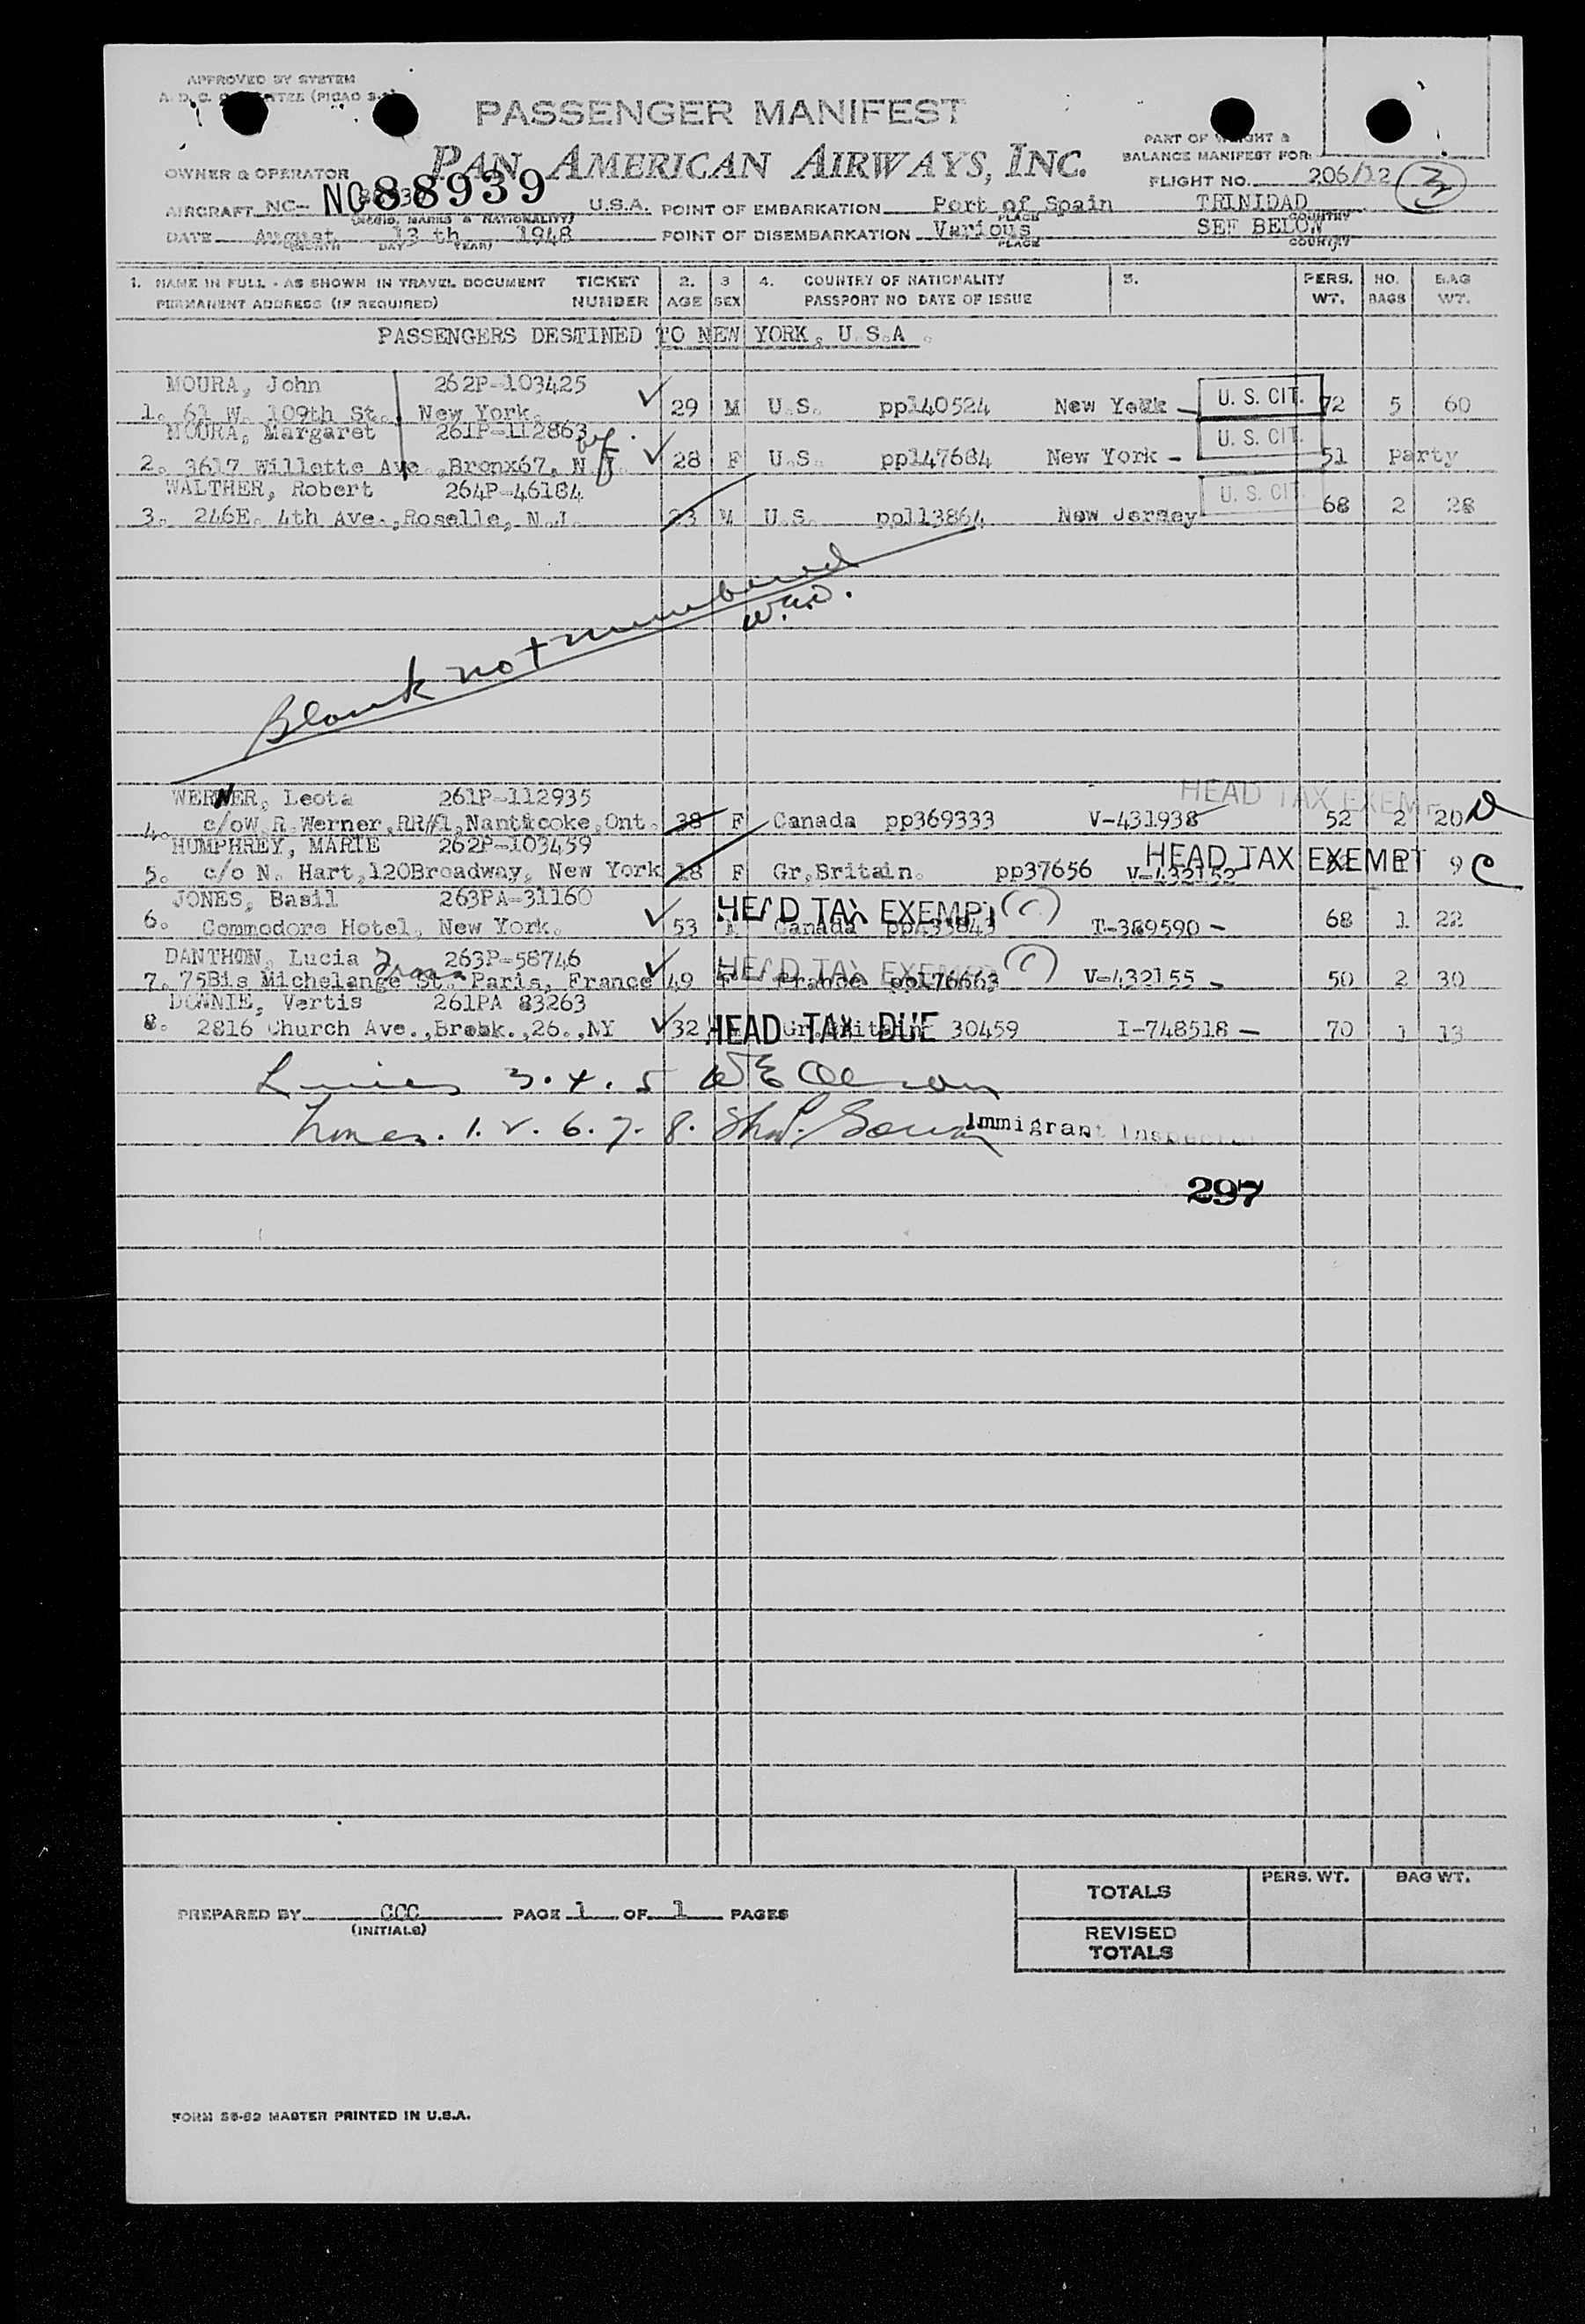 APPROVED BY SYSTEM
PASSENGER MANIFEST
PAN AMERICAN AIRWAYS, INC.
PART OF WEIGHT &
BALANCE MANIFEST FOR:
OWNER & OPERATOR
FLIGHT NO. 206/12 3
AIRCRAFT NC- NC88939 U.S.A. POINT OF EMBARKATION Port of Spain TRINIDAD
(REGIS. MARKS & NATIONALITY) PLACE COUNTRY
DATE August 13 th 1948 POINT OF DISEMBARKATION Various SEE BELOW
(MONTH DAY YEAR) PLACE COUNTRY
1. NAME IN FULL - AS SHOWN IN TRAVEL DOCUMENT TICKET 2. 3 4. COUNTRY OF NATIONALITY 5. PERS. NO. BAG
PERMANENT ADDRESS (IF REQUIRED) NUMBER AGE SEX PASSPORT NO DATE OF ISSUE WT. BAGS WT.
PASSENGERS DESTINED TO NEW YORK, U.S.A.
MOURA, John 262P-103425
1. 61 W. 109th St., New York. 29 M U.S. pp140524 New York - U. S. CIT. 72 5 60
MOURA, Margaret 261P-112863
2. 3617 Willette Ave.,Bronx67, N.Y. 28 F U.S. pp147684 New York - U. S. CIT. 51 Party
WALTHER, Robert 264P-46184
3. 246E. 4th Ave.,Roselle, N.J. 23 M U.S. pp113864 New Jersey U. S. CIT. 68 2 28
Blank not numbered
WERNER, Leota 261P-112935 HEAD TAX EXEMPT
4. c/oW.R.Werner,RR#1,Nanticoke,Ont. 38 F Canada pp369333 V-431938 52 2 20
HUMPHREY, MARIE 262P-103459
5. c/o N. Hart,120Broadway, New York 18 F Gr.Britain. pp37656 V-432152 HEAD TAX EXEMPT 9 C
JONES, Basil 263PA-31160 HEAD TAX EXEMPT (C)
6. Commodore Hotel, New York. 53 Canada T-389590 - 68 1 22
DANTHON, Lucia 263P-58746 HEAD TAX EXEMPT (C)
7. 75Bis Michelange St. Paris, France 49 F France pp176663 V-432155 - 50 2 30
DOWNIE, Vertis 261PA 83263
8. 2816 Church Ave.,Brook.,26.,NY 32 HEAD TAX DUE Gr.Britain 30459 I-748518 - 70 1 13
Lines 3.4.5
Lines. 1.2.6.7.8. Immigrant Inspector
297
TOTALS PERS. WT. BAG WT.
PREPARED BY CCC PAGE 1 OF 1 PAGES
(INITIALS)
REVISED
TOTALS
FORM 25-62 MASTER PRINTED IN U.S.A.